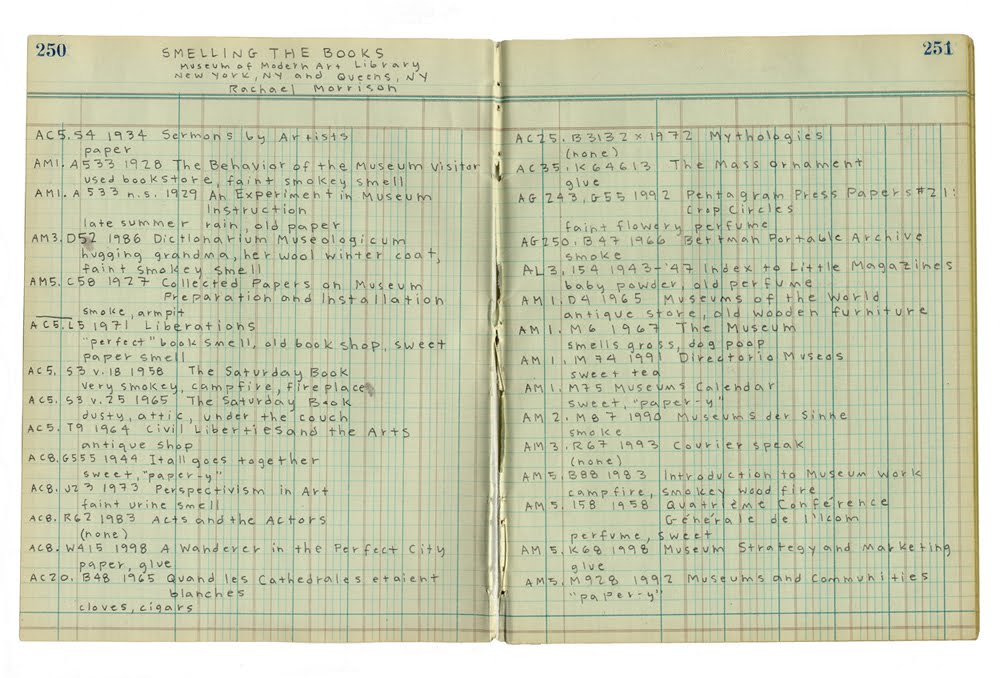 250
SMELLING THE BOOKS
Museum of Modern Art Library
New York, NY and Queens, NY
Rachael Morrison
AC5. S4 1934 Sermons by Artists
paper
AM1. A533 1928 The Behavior of the Museum Visitor
used bookstore, faint smokey smell
AM1. A533 n.s. 1929 An Experiment in Museum
Instruction
late summer rain, old paper
AM3. D52 1986 Dictionarium Museologicum
hugging grandma, her wool winter coat,
faint smokey smell
AM5. C58 1927 Collected Papers on Museum
Preparation and Installation
smoke, armpit
AC5. L5 1971 Liberations
"perfect" book smell, old book shop, sweet
paper smell
AC5. S3 v.18 1958 The Saturday Book
very smokey, campfire, fireplace
AC5. S3 v.25 1965 The Saturday Book
dusty, attic, under the couch
AC5. T9 1964 Civil Liberties and the Arts
antique shop
AC8. G555 1944 It all goes together
sweet, "paper-y"
AC8. J23 1973 Perspectivism in Art
faint urine smell
AC8. R62 1983 Acts and the Actors
(none)
AC8. W415 1998 A Wanderer in the Perfect City
paper, glue
AC20. B48 1965 Quand les Cathedrales etaient
blanches
cloves, cigars
251
AC25. B3132x 1972 Mythologies
(none)
AC35. K64613 The Mass Ornament
glue
AG243. G55 1992 Pentagram Press Papers #21:
Crop Circles
faint flowery perfume
AG250. B47 1966 Bertman Portable Archive
smoke
AL3. I54 1943-'47 Index to Little Magazines
baby powder, old perfume
AM1. D4 1965 Museums of the World
antique store, old wooden furniture
AM1. M6 1967 The Museum
smells gross, dog poop
AM1. M74 1991 Directorio Museos
sweet tea
AM1. M75 Museums Calendar
sweet, "paper-y"
AM2. M87 1990 Museums der Sinne
smoke
AM3. R67 1993 Courier speak
(none)
AM5. B88 1983 Introduction to Museum Work
campfire, smokey wood fire
AM5. I58 1958 Quatrième Conférence
Générale de l'Icom
perfume, sweet
AM5. K68 1998 Museum Strategy and Marketing
glue
AM5. M928 1992 Museums and Communities
"paper-y"